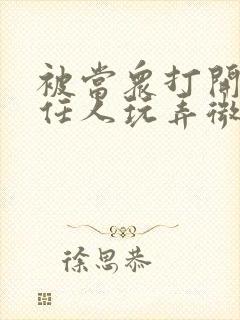 被當眾打開
任人玩弄微
徐思恭